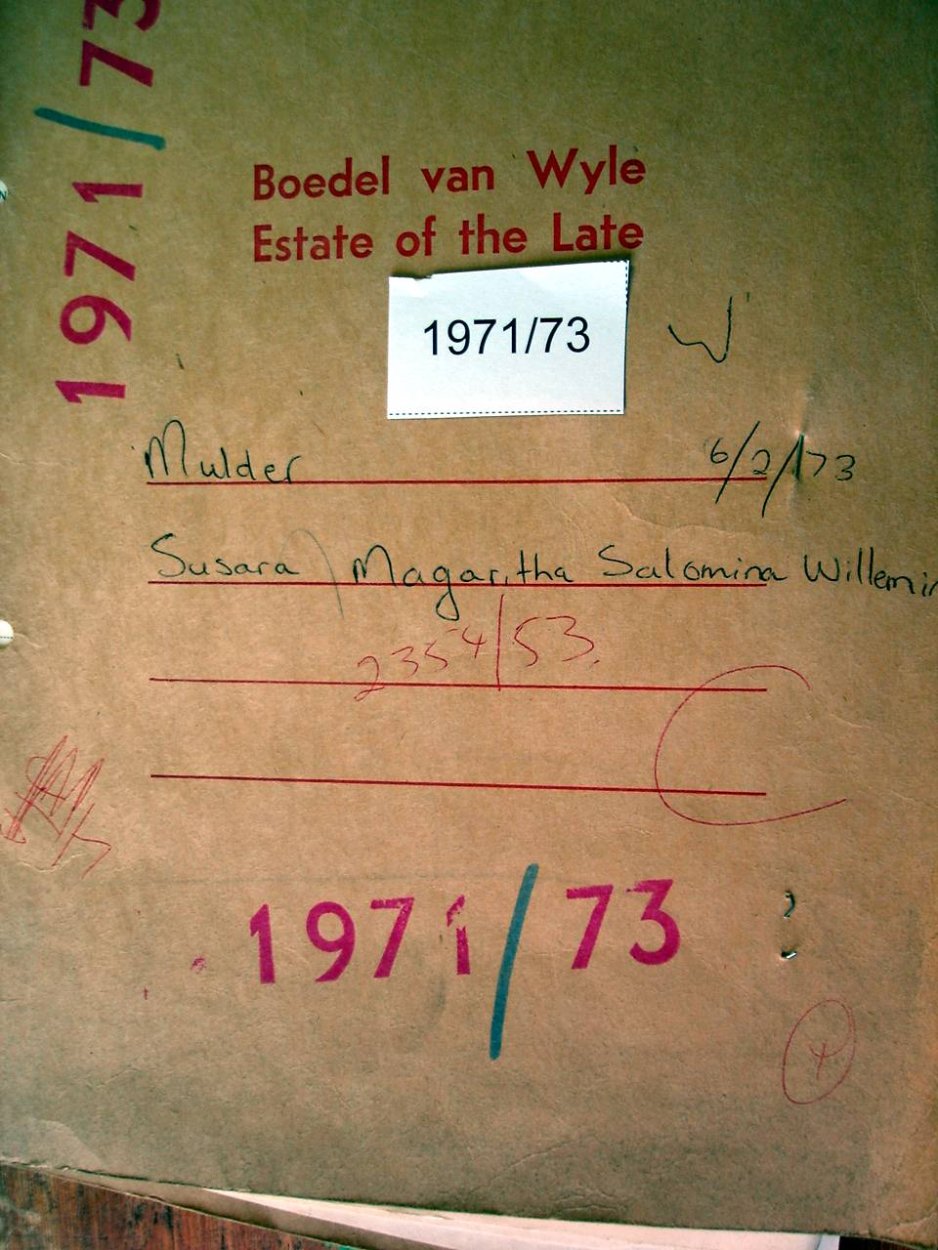 1971/73
Boedel van Wyle
Estate of the Late
1971/73
Mulder 6/2/73
Susara Magaritha Salomina Willemin
2354/53.
1971/73